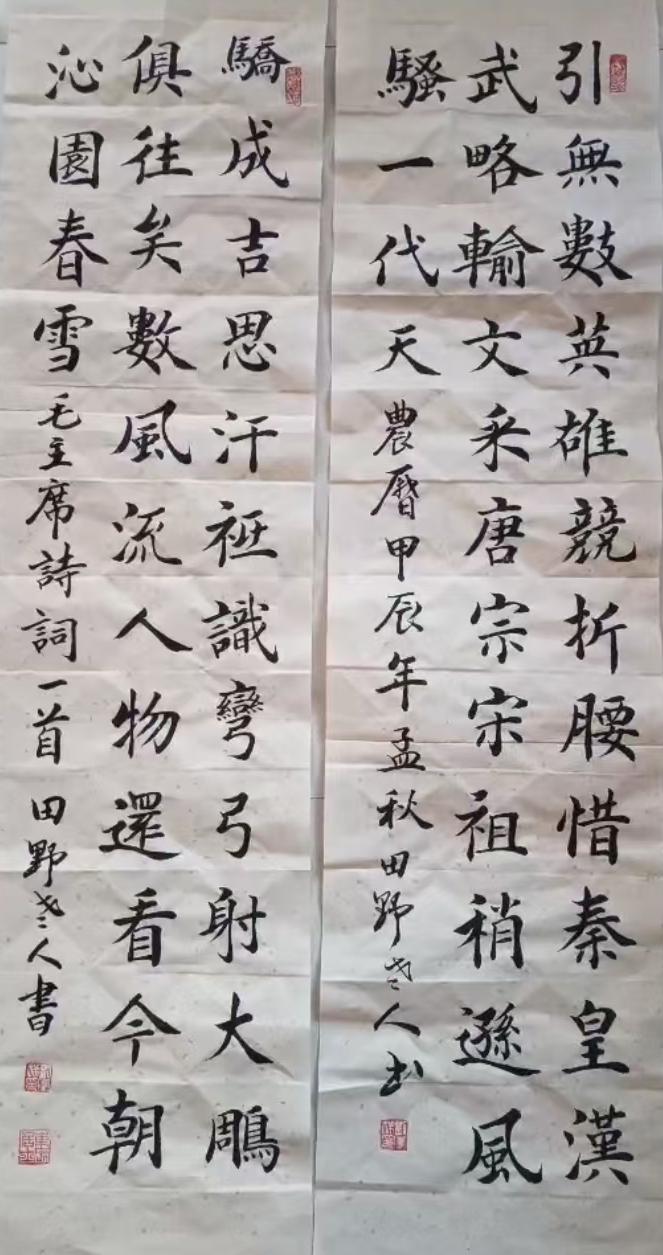 引無數英雄競折腰惜秦皇漢
武略輸文采唐宗宋祖稍遜風
騷一代天 農曆甲辰年孟秋田野老人书
驕成吉思汗祇識彎弓射大鵰
俱往矣數風流人物還看今朝
沁園春雪 毛主席詩詞一首 田野老人書